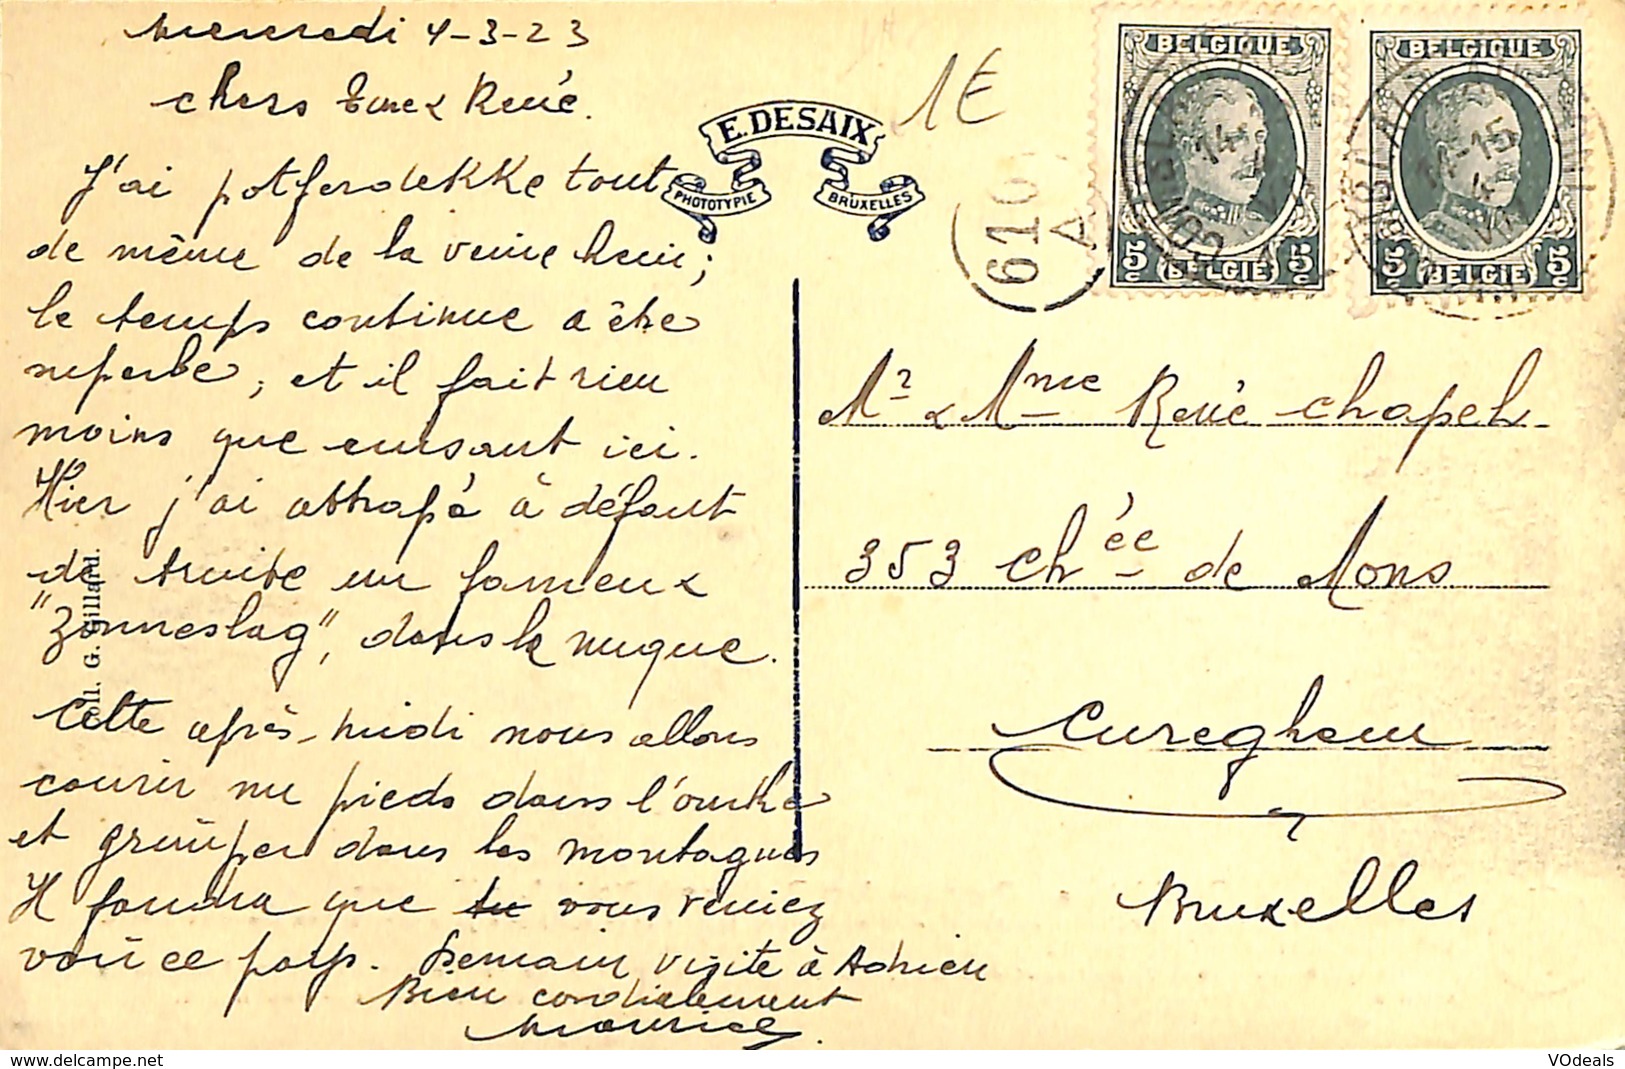 Mercredi 4-3-23
chers & René.
J'ai potferdekke tout
de même de la veine hein;
le temps continue a être
superbe, et il fait rien
moins que cuisant ici.
Hier j'ai attrapé à défaut
de truite un fameux
"Zonneslag", dans la nuque.
Cette après-midi nous allons
courir nu pieds dans l'ourthe
et grimper dans les montagnes
Il faudra que tu vous veniez
voir ce pays. Demain visite à Adrien
Bien cordialement
Maurice.
Coll. G. Gillard.
E. DESAIX
PHOTOTYPIE
BRUXELLES
1€
610
A
BELGIQUE
5c
BELGIË
5c
BELGIQUE
5c
BELGIË
5c
Mr & Mme René Chapel
353 chée de Mons
Cureghem
Bruxelles
VOdeals
https://www.delcampe.net